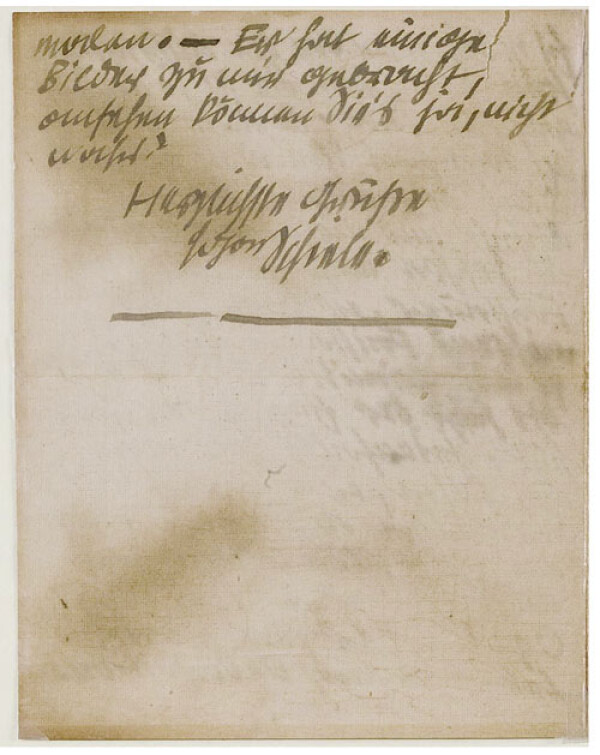 malen. — Er hat einige
Bilder zu mir gebracht,
ansehen können Sie's ja, nicht
wahr?
Herzlichste Grüße
Schiele.